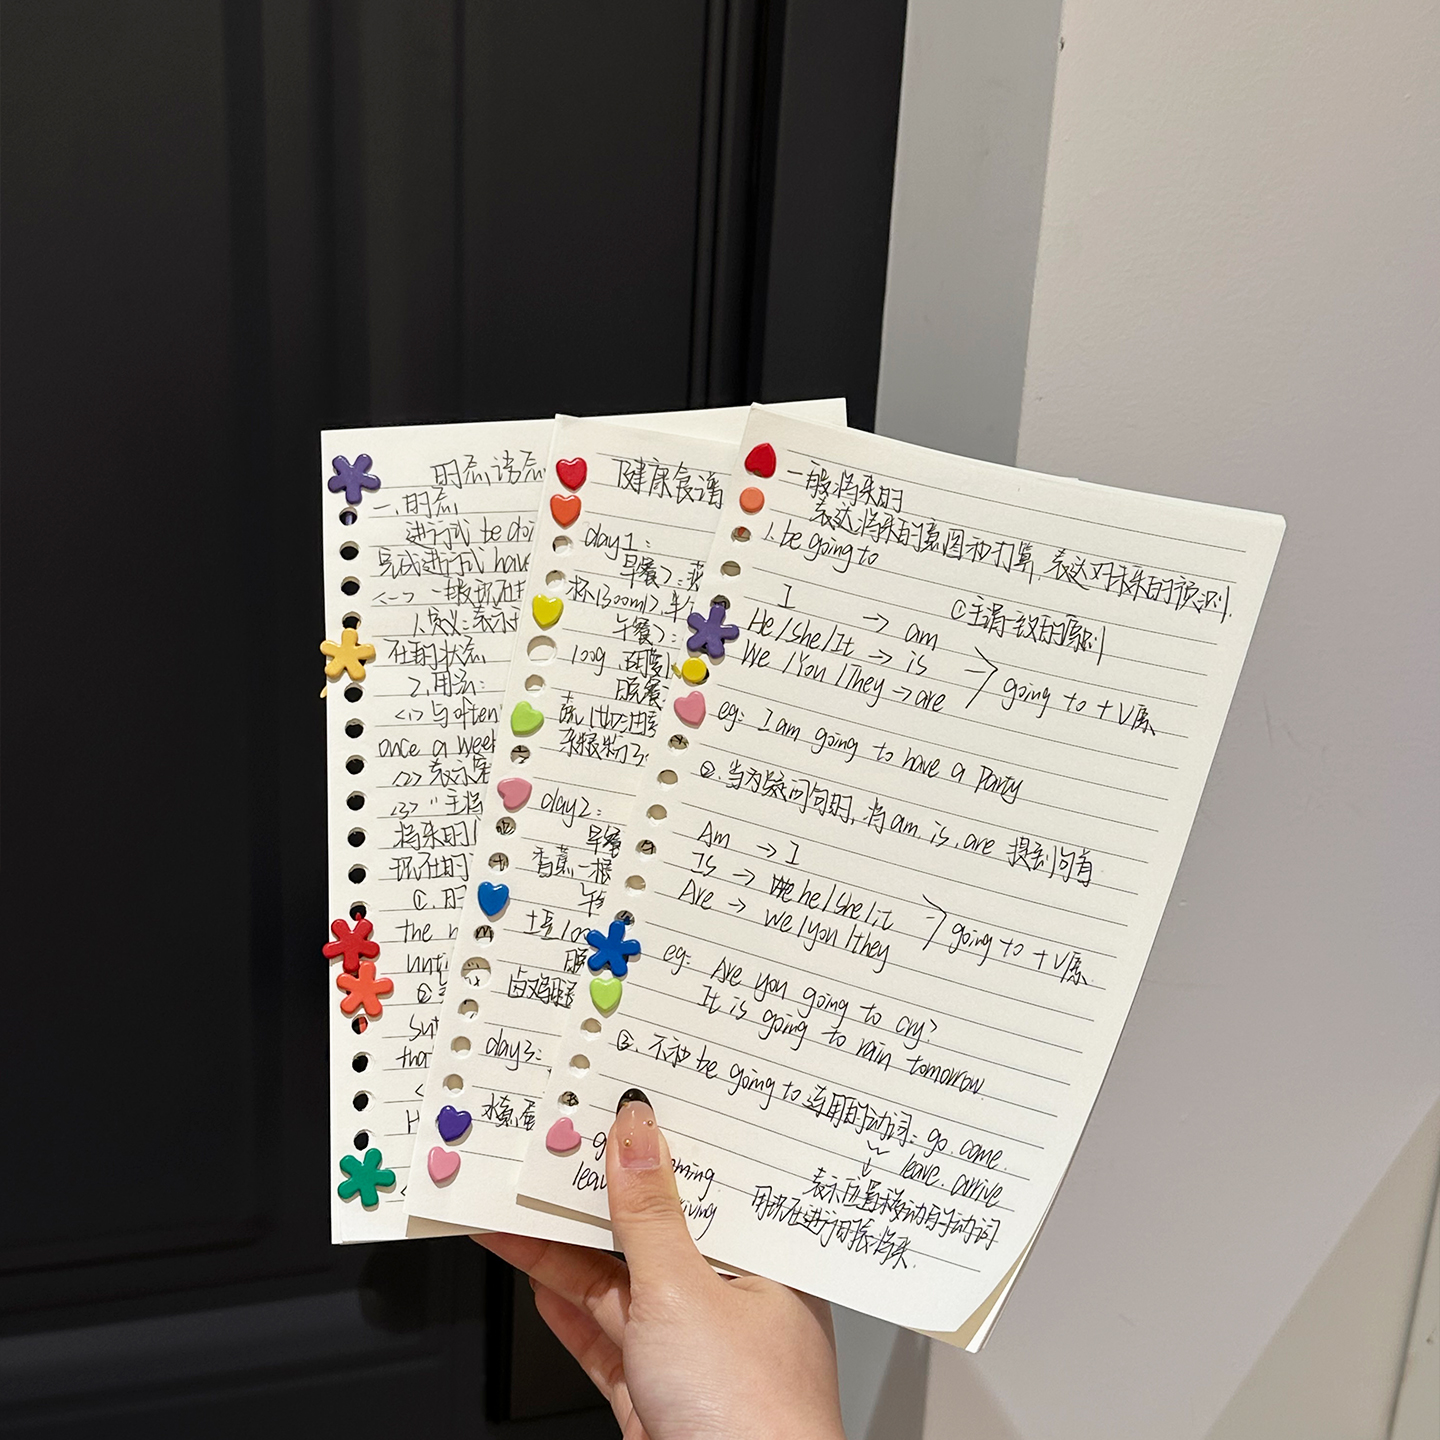 时态语态
一、时态
进行式 be doi
完成进行式 have
<一> 一般现在时
1.定义:表示
在的状态
2.用法:
<1>与often
once a week
<2>表示客
<3>"主将
将来的
现在的
①.时
the m
unti
②
su
tha
健康食谱
day1:
早餐>:
杯(300ml),
午餐>:
100g,
晚餐:
杂粮粉
day2:
早餐
香蕉一根
午
100
晚
卤鸡腿
day3:
水煮蛋
一般将来时
表达将来的意图和打算,表达对未来的预测.
1. be going to
①主谓一致的原则
I → am
He/She/It → is
We/You/They → are
going to + V原
eg: I am going to have a Party
②.当为疑问句时,将am, is, are 提到句首
Am → I
Is → he/she/it
Are → we/you/they
going to + V原
eg: Are you going to cry?
It is going to rain tomorrow.
③.不和 be going to 连用的动词: go. come.
leave. arrive
表示位置移动的动词
用现在进行时表将来.